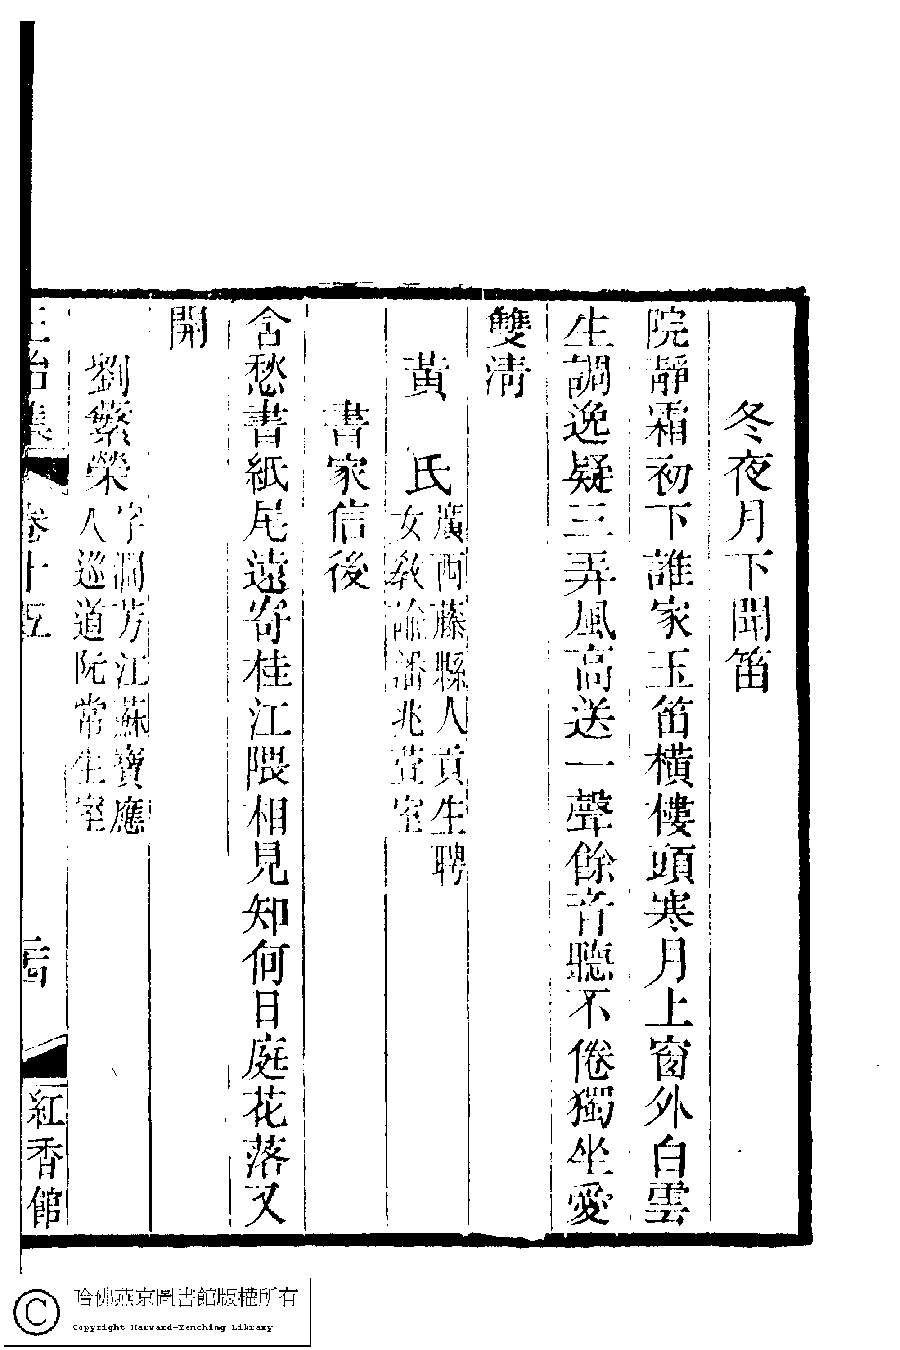 冬夜月下聞笛
院靜霜初下誰家玉笛橫樓頭寒月上窗外白雲
生調逸疑三弄風高送一聲餘音聽不倦獨坐愛
雙清
黃 氏
廣西藤縣人貢生聘
女教諭潘兆萱室
書家信後
含愁書紙尾遠寄桂江隈相見知何日庭花落又
開
劉蘩榮
字澗芳江蘇寶應
人巡道阮常生室
正始集 卷十五
紅香館
哈佛燕京圖書館版權所有
Copyright Harvard-Yenching Library